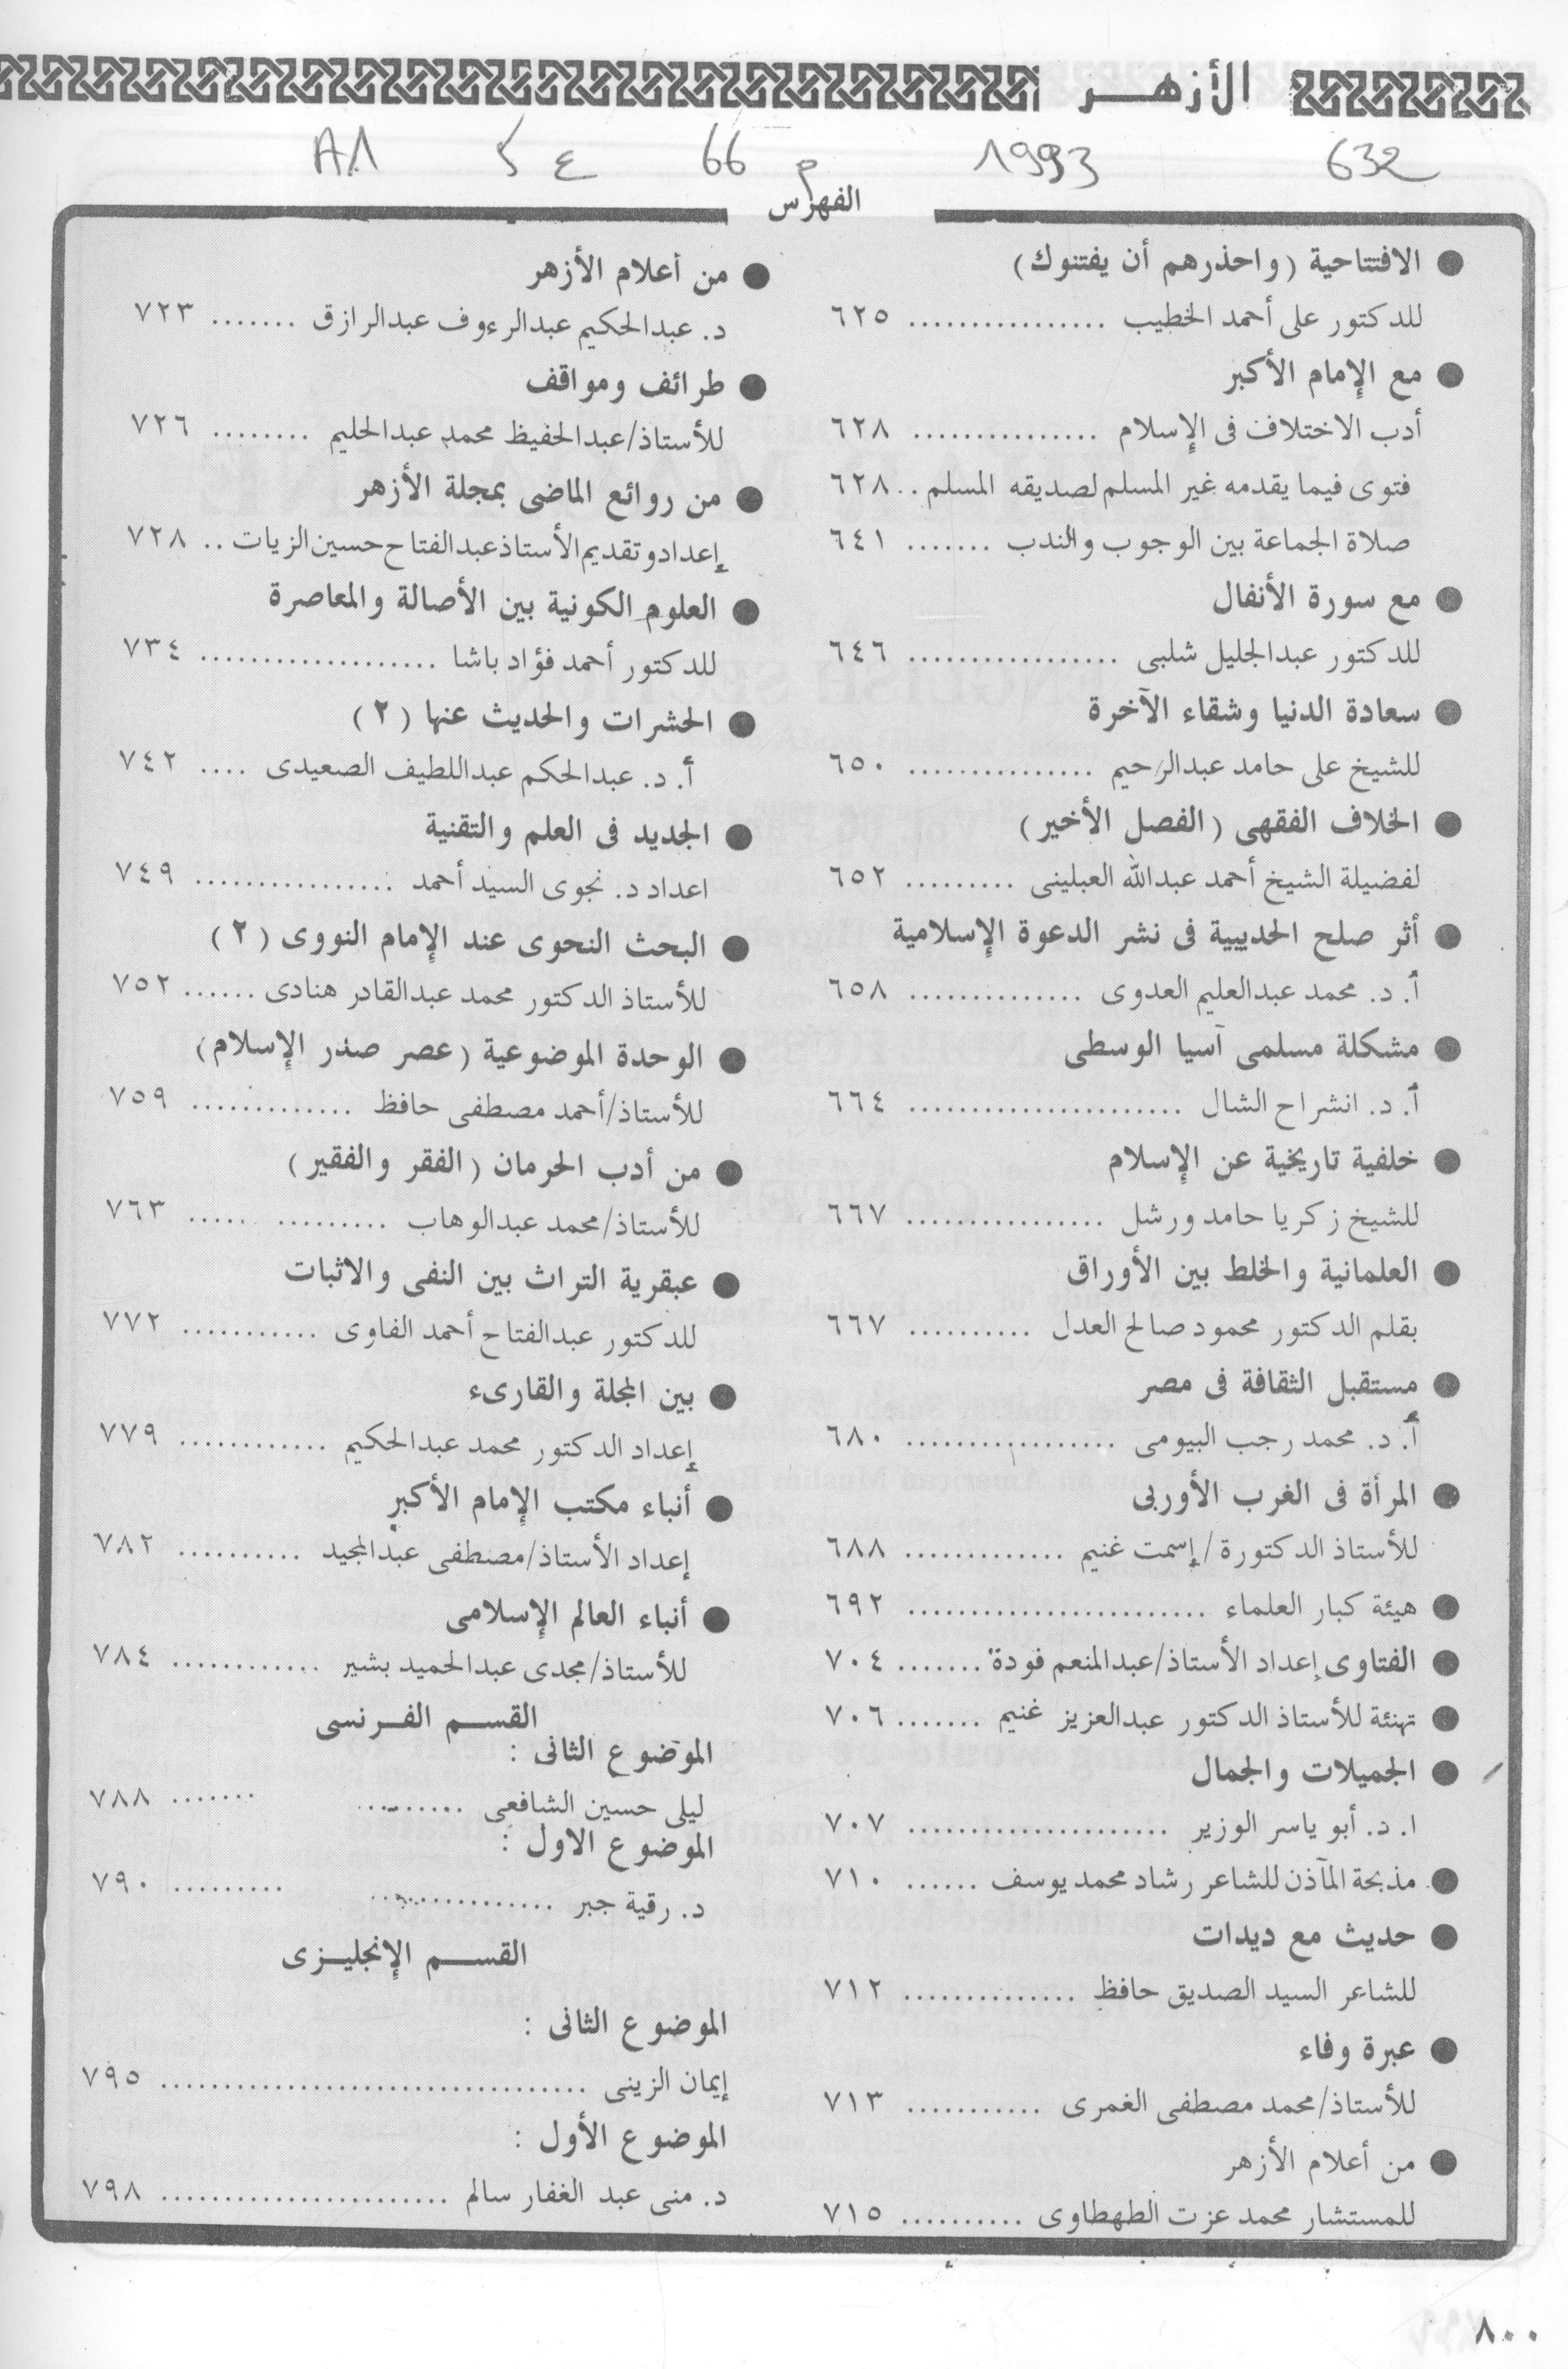 الأزهر
632 1993 م 66 ع 5 A1
الفهرس
● الافتتاحية (واحذرهم أن يفتنوك)
للدكتور على أحمد الخطيب ................ ٦٢٥
● مع الإمام الأكبر
أدب الاختلاف فى الإسلام ............... ٦٢٨
فتوى فيما يقدمه غير المسلم لصديقه المسلم .. ٦٢٨
صلاة الجماعة بين الوجوب والندب ....... ٦٤١
● مع سورة الأنفال
للدكتور عبدالجليل شلبى ................. ٦٤٦
● سعادة الدنيا وشقاء الآخرة
للشيخ على حامد عبدالرحيم ............... ٦٥٠
● الخلاف الفقهى (الفصل الأخير)
لفضيلة الشيخ أحمد عبدالله العبلينى ......... ٦٥٢
● أثر صلح الحديبية فى نشر الدعوة الإسلامية
أ. د. محمد عبدالعليم العدوى .............. ٦٥٨
● مشكلة مسلمى آسيا الوسطى
أ. د. انشراح الشال ...................... ٦٦٤
● خلفية تاريخية عن الإسلام
للشيخ زكريا حامد ورشل ................ ٦٦٧
● العلمانية والخلط بين الأوراق
بقلم الدكتور محمود صالح العدل .......... ٦٦٧
● مستقبل الثقافة فى مصر
أ. د. محمد رجب البيومى ................. ٦٨٠
● المرأة فى الغرب الأوربى
للأستاذ الدكتورة/إسمت غنيم ............. ٦٨٨
● هيئة كبار العلماء ........................ ٦٩٢
● الفتاوى إعداد الأستاذ/عبدالمنعم فودة ....... ٧٠٤
● تهنئة للأستاذ الدكتور عبدالعزيز غنيم ....... ٧٠٦
● الجميلات والجمال
ا. د. أبو ياسر الوزير ..................... ٧٠٧
● مذبحة المآذن للشاعر رشاد محمد يوسف ...... ٧١٠
● حديث مع ديدات
للشاعر السيد الصديق حافظ .............. ٧١٢
● عبرة وفاء
للأستاذ/محمد مصطفى الغمرى ........... ٧١٣
● من أعلام الأزهر
للمستشار محمد عزت الطهطاوى .......... ٧١٥
● من أعلام الأزهر
د. عبدالحكيم عبدالرءوف عبدالرازق ....... ٧٢٣
● طرائف ومواقف
للأستاذ/عبدالحفيظ محمد عبدالحليم ........ ٧٢٦
● من روائع الماضى بمجلة الأزهر
إعدادوتقديم الأستاذ عبدالفتاح حسين الزيات .. ٧٢٨
● العلوم الكونية بين الأصالة والمعاصرة
للدكتور أحمد فؤاد باشا ................... ٧٣٤
● الحشرات والحديث عنها (٢)
أ. د. عبدالحكم عبداللطيف الصعيدى .... ٧٤٢
● الجديد فى العلم والتقنية
اعداد د. نجوى السيد أحمد ................ ٧٤٩
● البحث النحوى عند الإمام النووى (٢)
للأستاذ الدكتور محمد عبدالقادر هنادى ...... ٧٥٢
● الوحدة الموضوعية (عصر صدر الإسلام)
للأستاذ/أحمد مصطفى حافظ ............. ٧٥٩
● من أدب الحرمان (الفقر والفقير)
للأستاذ/محمد عبدالوهاب ......... ...... ٧٦٣
● عبقرية التراث بين النفى والاثبات
للدكتور عبدالفتاح أحمد الفاوى ........... ٧٧٢
● بين المجلة والقارىء
إعداد الدكتور محمد عبدالحكيم ............ ٧٧٩
● أنباء مكتب الإمام الأكبر
إعداد الأستاذ/مصطفى عبدالمجيد .......... ٧٨٢
● أنباء العالم الإسلامى
للأستاذ/مجدى عبدالحميد بشير ............ ٧٨٤
القسم الفرنسى
الموضوع الثانى :
ليلى حسين الشافعى ......... ....... ٧٨٨
الموضوع الاول :
د. رقية جبر .............. ......... ٧٩٠
القسم الإنجليزى
الموضوع الثانى :
إيمان الزينى .................................. ٧٩٥
الموضوع الأول :
د. منى عبد الغفار سالم ....................... ٧٩٨
٨٠٠